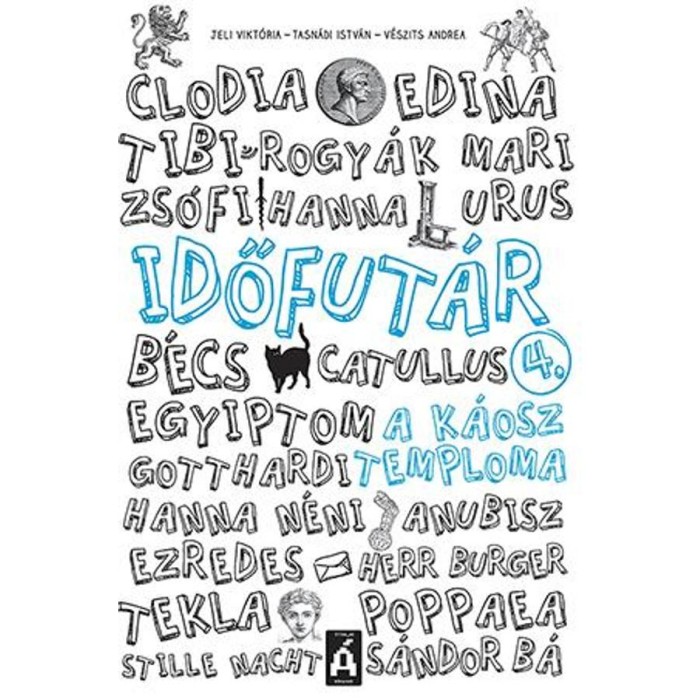 JELI VIKTÓRIA – TASNÁDI ISTVÁN – VÉSZITS ANDREA
CLODIA EDINA
TIBI ROGYÁK MARI
ZSÓFI HANNA URUS
IDŐFUTÁR
BÉCS CATULLUS 4.
EGYIPTOM A KÁOSZ
GOTTHARDI TEMPLOMA
HANNA NÉNI ANUBISZ
EZREDES HERR BURGER
TEKLA POPPAEA
STILLE NACHT Á SÁNDOR BÁ